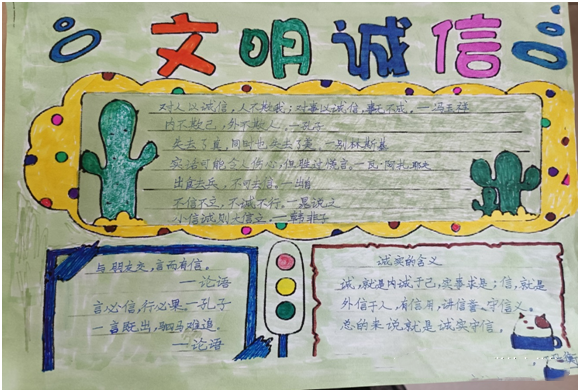 文明诚信
对人以诚信，人不欺我；对事以诚信，事无不成。—冯玉祥
内不欺己，外不欺人。—孔子
失去了真，同时也失去了美。—别林斯基
实话可能令人伤心，但胜过谎言。—瓦·阿扎耶夫
出自去兵，不可去信。
不信不立，不诚不行。—晁说之
小信诚则大信立。—韩非子
与朋友交，言而有信。
—论语
言必信，行必果。—孔子
一言既出，驷马难追
—论语
诚实的含义
诚，就是内诚于己，实事求是；信，就是
外信于人，有信用，讲信誉，守信义
总的来说，就是诚实守信。